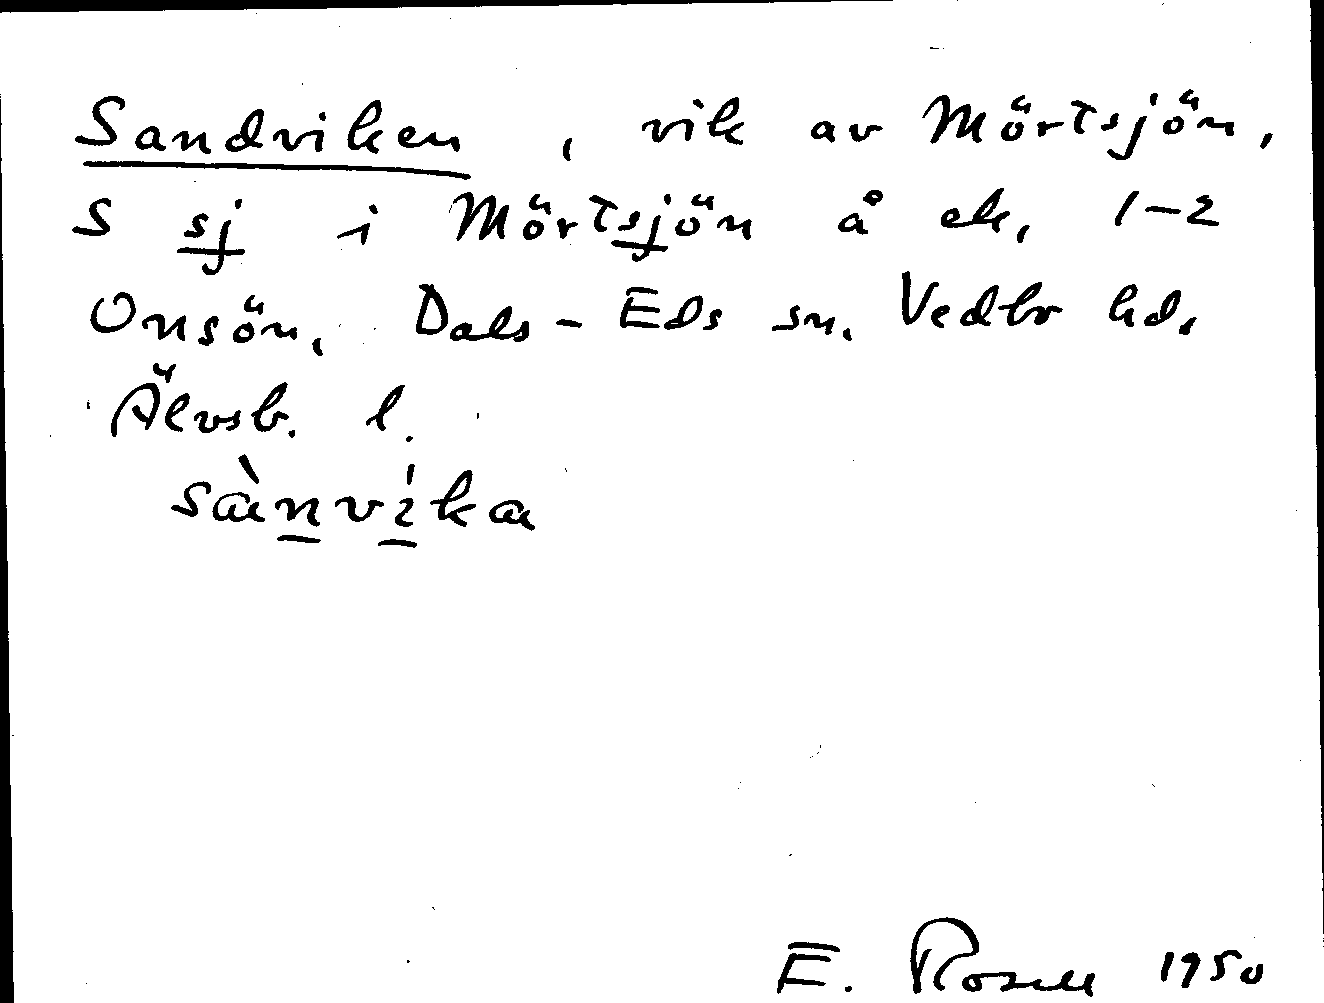 Sandviken, vik av Mörtsjön,
S sj i Mörtsjön å ek. 1-2
Onsön. Dals-Eds sn. Vedbo hd.
Älvsb. l.
sànvíka
E. Rosell 1950